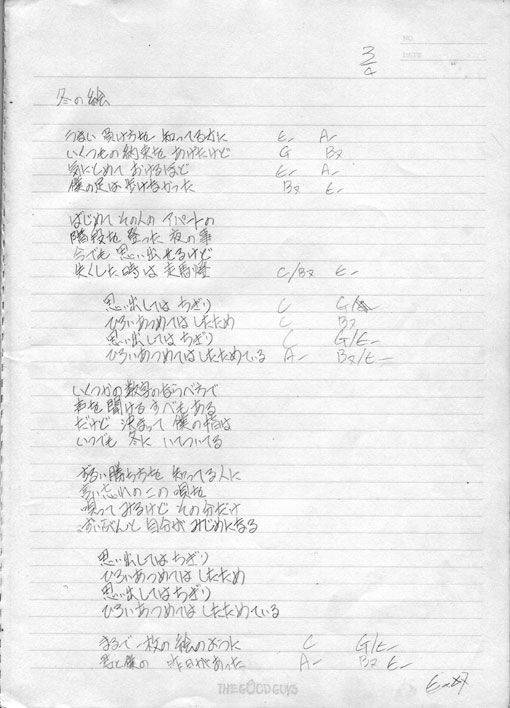 3/4
NO.
DATE
冬の絵
うまい負け方を 知ってるのに E- A-
いくつもの約束を あげたけど G B7
気にとめて おけるほど E- A-
僕の足は 歩けなかった B7 E-
はじめて その人の アパートの
階段を 登った 夜の事
今でも 思い出せるけど
失くした時は 走馬燈 C/B7 E-
思い出しては ちぎり C G/
ひろいあつめては したため C B7
思い出しては ちぎり C G/E-
ひろいあつめては したためている A- B7/E-
いくつかの数字のならべ方で
声を聞ける すべもある
だけど 決まって 僕の指は
いつでも 冬に いてついてる
ずるい勝ち方を 知ってる人に
言い忘れの この唄を
唄って みるけど その分だけ
ずいぶんと 自分が みじめになる
思い出しては ちぎり
ひろいあつめては したため
思い出しては ちぎり
ひろいあつめては したためている
まるで 一枚の 絵のように C G/E-
君と僕の 昨日があった A- B7 E-
THE GOOD GUYS